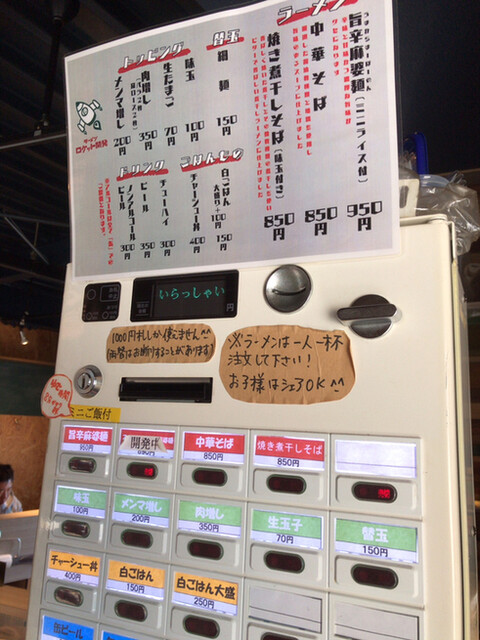 ラーメン
旨辛麻婆麺(ミニライス付) 950円
中華そば 850円
焼き煮干しそば(味玉付き) 850円
替玉
細麺 150円
トッピング
味玉 100円
生たまご 70円
肉増し 350円
メンマ増し 200円
ごはんもの
白ごはん 150円
大盛り+100円
チャーシュー丼 400円
ドリンク
チューハイ 300円
ビール 350円
ノンアルコールビール 300円
ロケット開発
いらっしゃい
円
1000円札しか使えません^^
(両替はお断りすることがあります)
※ラーメンは一人一杯
注文して下さい!
お子様はシェアOK^^
ミニご飯付
旨辛麻婆麺
950円
開発中
850円
中華そば
850円
焼き煮干しそば
850円
味玉
100円
メンマ増し
200円
肉増し
350円
生玉子
70円
替玉
150円
チャーシュー丼
400円
白ごはん
150円
白ごはん大盛
250円
缶ビール